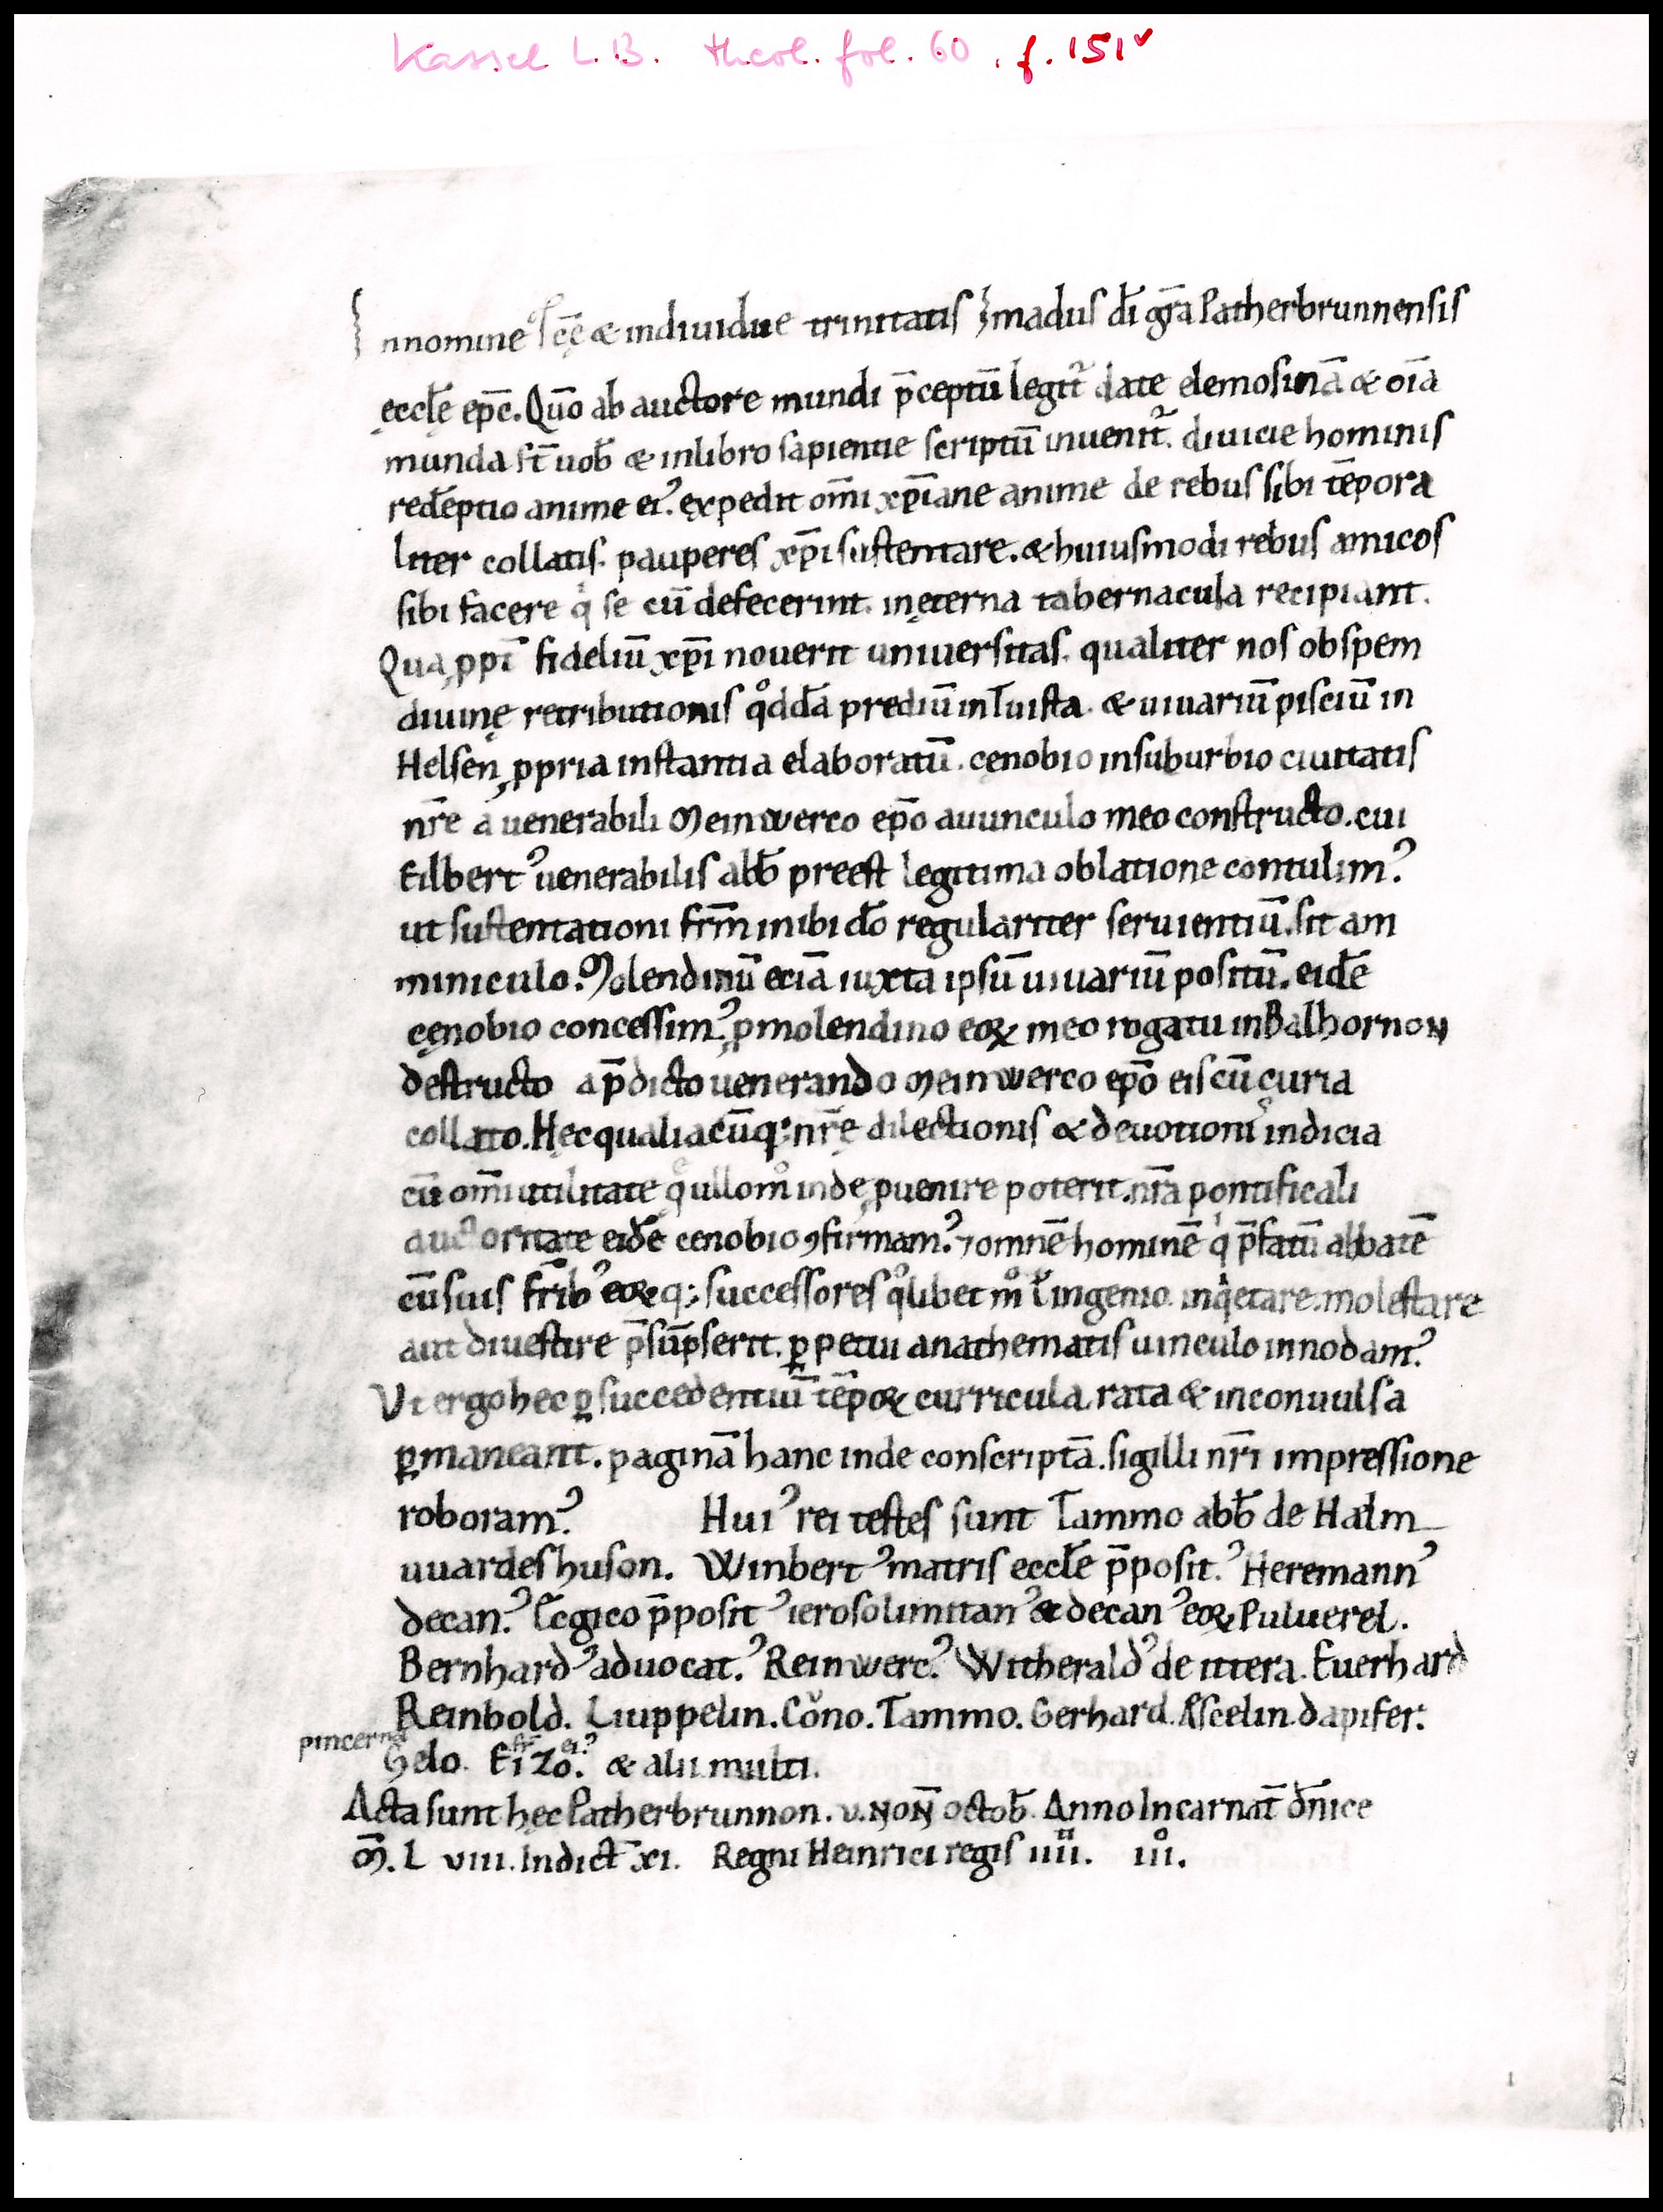 Kassel L.B. theol. fol. 60, f. 151ᵛ
Innomine s̄cę & indiuidue trinitatis Imadus dī gr̄a Patherbrunnensis
ęccl̄ę ep̄c. Quō ab auctore mundi p̄ceptū legit᷑ date elemosinā & oīa
munda st̄ uob̄ & inlibro sapientie scriptū inuenit᷑. diuicie hominis
redēptio anime eiꝰ. expedit om̄i xp̄iane anime de rebus sibi tēpora
liter collatis. pauperes xp̄i sustentare. & huiusmodi rebus amicos
sibi facere qͥ se cū defecerint. inęterna tabernacula recipiant.
Qua ꝓpt̄ fideliū xp̄i nouerit uniuersitas. qualiter nos obspem
diuinę retributionis qͦddā prediū inTuista. & uiuariū pisciū in
Helsen ꝓpria instantia elaboratū. cęnobio insuburbio ciuitatis
nr̄e a uenerabili Meinwerco ep̄o auunculo meo constructo. cui
Eilbertꝰ uenerabilis abb̄ preest legitima oblatione contulimꝰ.
ut sustentationi fr̄m inibi dō regulariter seruientiū. sit am
miniculo. Molendinū eciā iuxta ipsū uiuariū positū. eidē
cęnobio concessimꝰ. ꝓmolendino eoꝝ meo rogatu inBalhornon
destructo a p̄dicto uenerando Meinwerco ep̄o eis cū curia
collato. Hęc qualiacūq; nr̄ę dilectionis & deuotionis indicia
cū om̄i utilitate quę ullom̊ inde ꝓuenire poterit. nr̄a pontificali
auctoritate eidē cenobio ꝯfirmamꝰ. ⁊ omnē hominē qͥ p̄fatū abbatē
cū suis fr̄ibꝰ eoꝝq; successores qͦlibet m̊ ł ingenio. inqͥetare. molestare
aut diuestire p̄sūpserit. ꝑpetui anathematis uinculo innodamꝰ.
Vt ergo hec ꝑ succedentiū tēpoꝝ curricula. rata & inconuulsa
ꝑmaneant. paginā hanc inde conscriptā. sigilli nr̄i impressione
roboramꝰ. Huiꝰ rei testes sunt Tammo abb̄ de Halm
uuardeshuson. Winbertꝰ matris eccl̄e p̄positꝰ. Heremannꝰ
decanꝰ. p̄positꝰ ierosolimitanꝰ & decanꝰ eoꝝ Puluerel.
Bernhardꝰ aduocatꝰ. Reinwercꝰ. Witheraldꝰ de ittera. Euerhard
Reinbold. Liuppelin. Cŏno. Tammo. Gerhard. Ascelin dapifer.
pincerna Gelo. Eizo. fr̄ eiꝰ & alii multi.
Acta sunt hęc Patherbrunnon. v. NON̄ octob̄. Anno Incarnat̄ dn̄ice
M̄. L VIII. Indict̄ XI. Regni Heinrici regis IIII. IIIͦ.